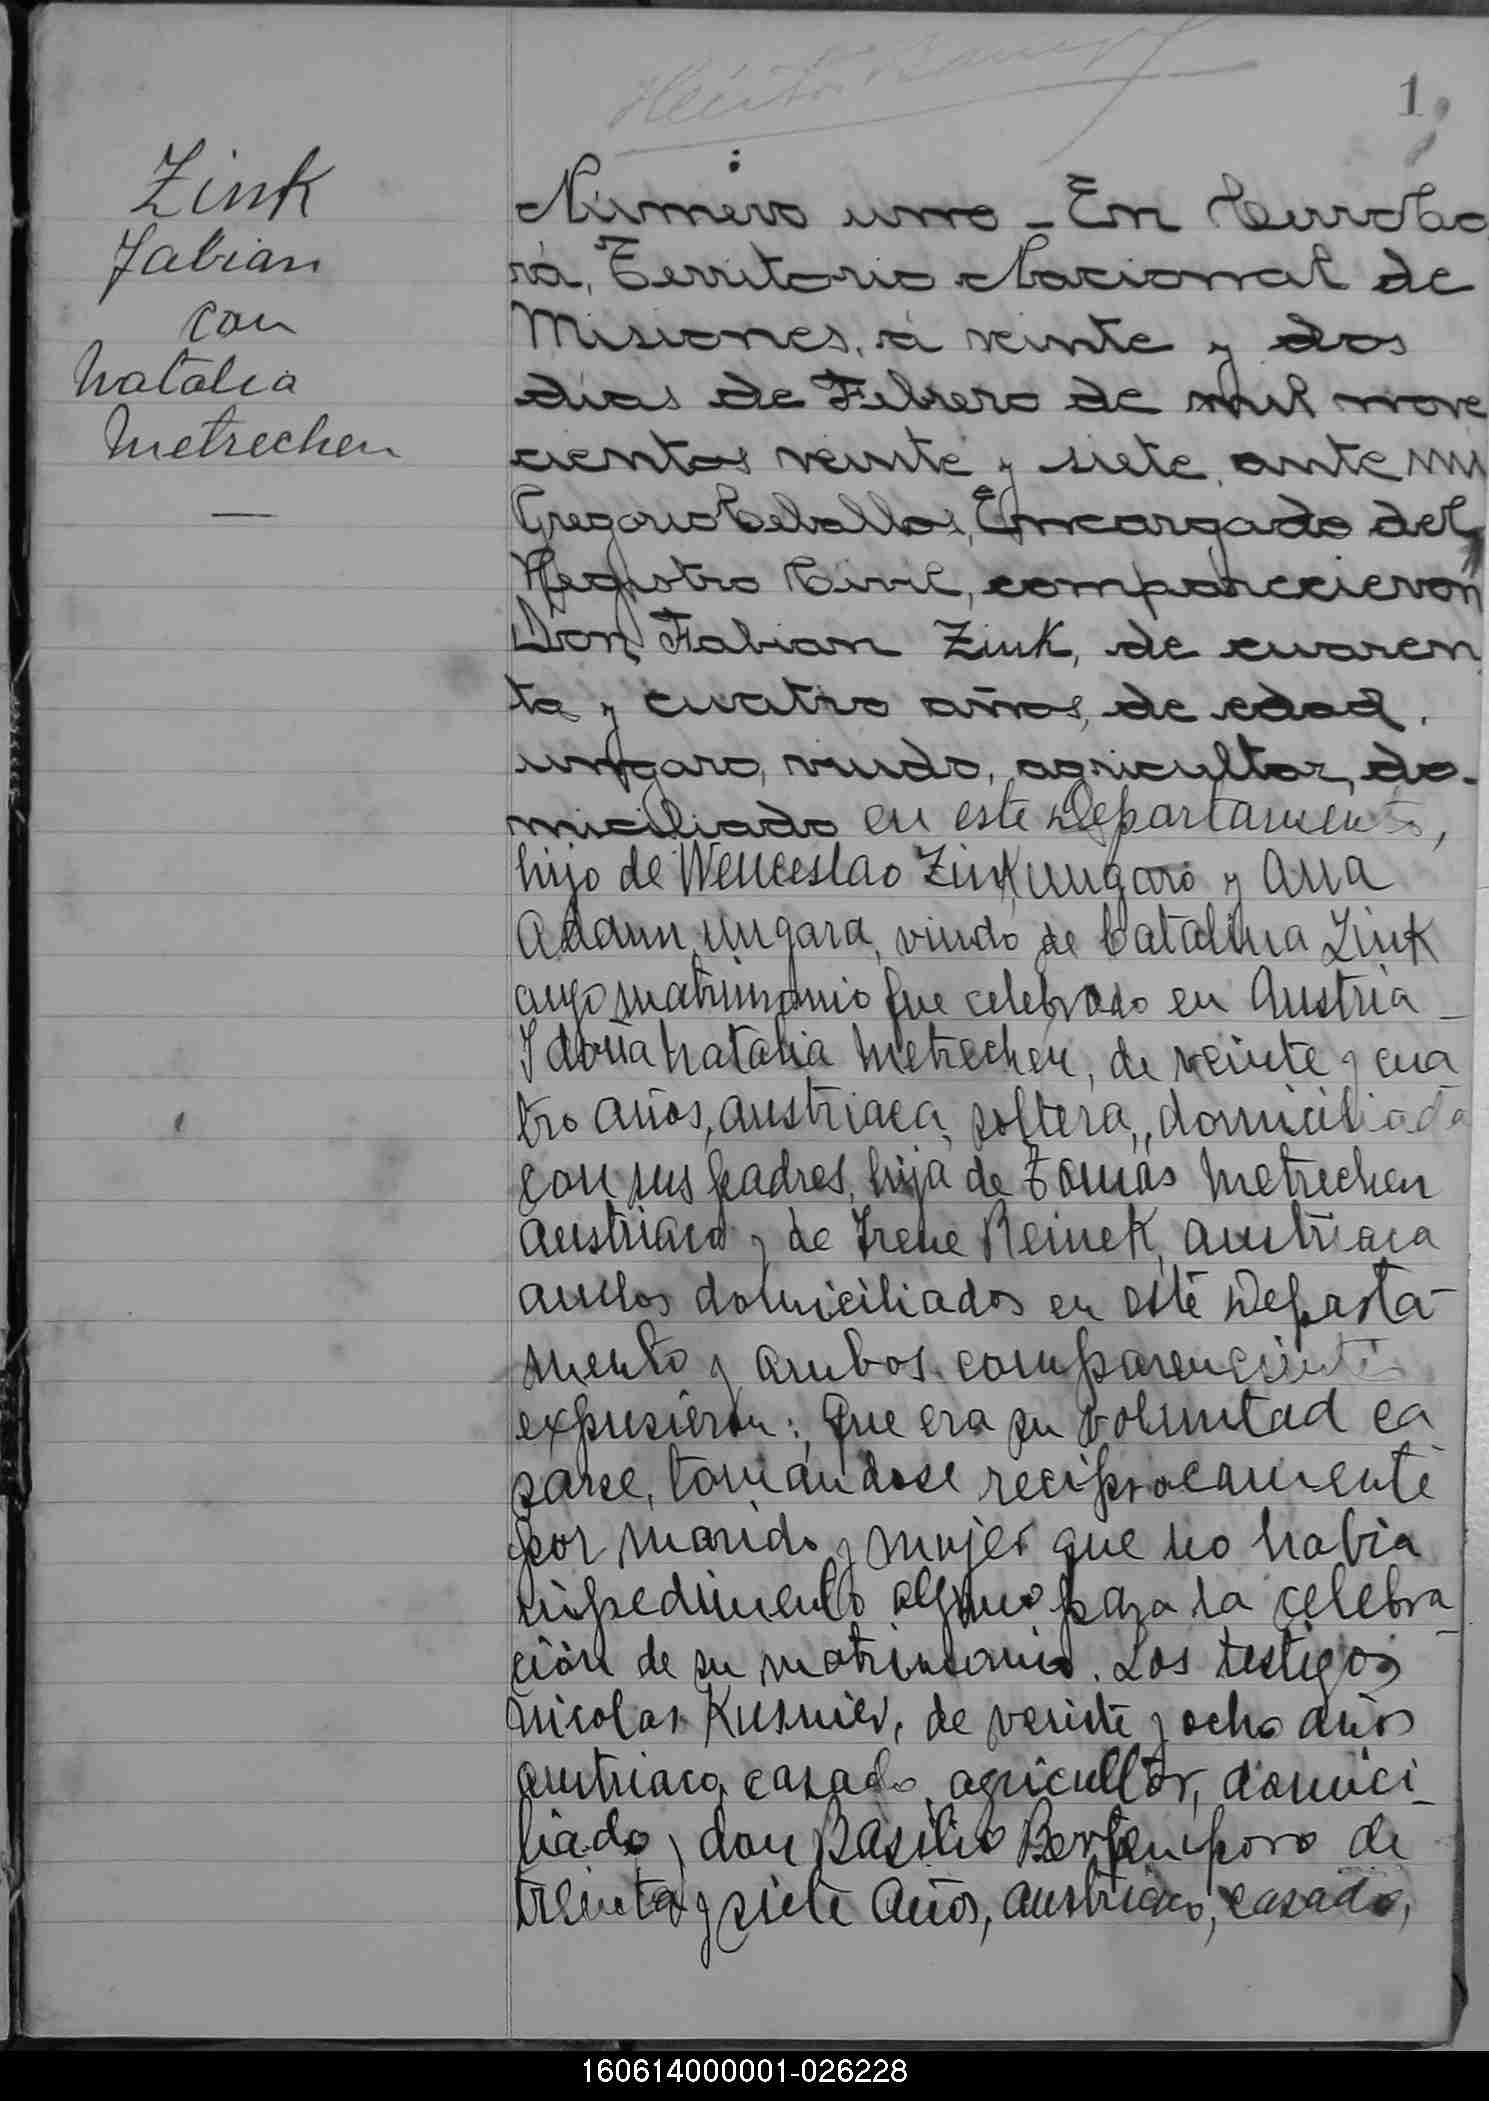 1
Zink
Fabian
con
Natalia
Metrechen
Número uno - En Cerro Co
rá, Territorio Nacional de
Misiones, á veinte y dos
dias de Febrero de mil nove
cientos veinte y siete, ante mi
Gregorio Ceballos, Encargado del
Registro Civil, comparecieron
Don Fabian Zink, de cuaren
ta y cuatro años, de edad,
ungaro, viudo, agricultor, do-
miciliado en este Departamento,
hijo de Wenceslao Zink, ungaro y Ana
Adamn, ungara, viudo de Catalina Zink
cuyo matrimonio fue celebrado en Austria -
I doña Natalia Metrechen, de veinte y cua
tro años, austriaca, soltera, domiciliada
con sus padres, hija de Tomás Metrechen
austriaco y de Irene Reinek, austriaca
ambos domiciliados en este Departa-
mento y ambos comparencientes
expusieron: Que era su voluntad ca
sarse, tomandose reciprocamente
por marido y mujer que no habia
impedimento alguno para la celebra
ción de su matrimonio. Los testigos
Nicolas Kusnier, de veinte y ocho años
austriaco, casado, agricultor, domici-
liado y don Basilio de
treinta y siete años, austriaco, casado,
160614000001-026228